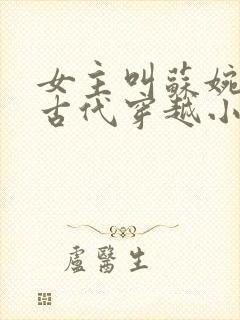 女主叫蘇婉
古代穿越小
盧醫生